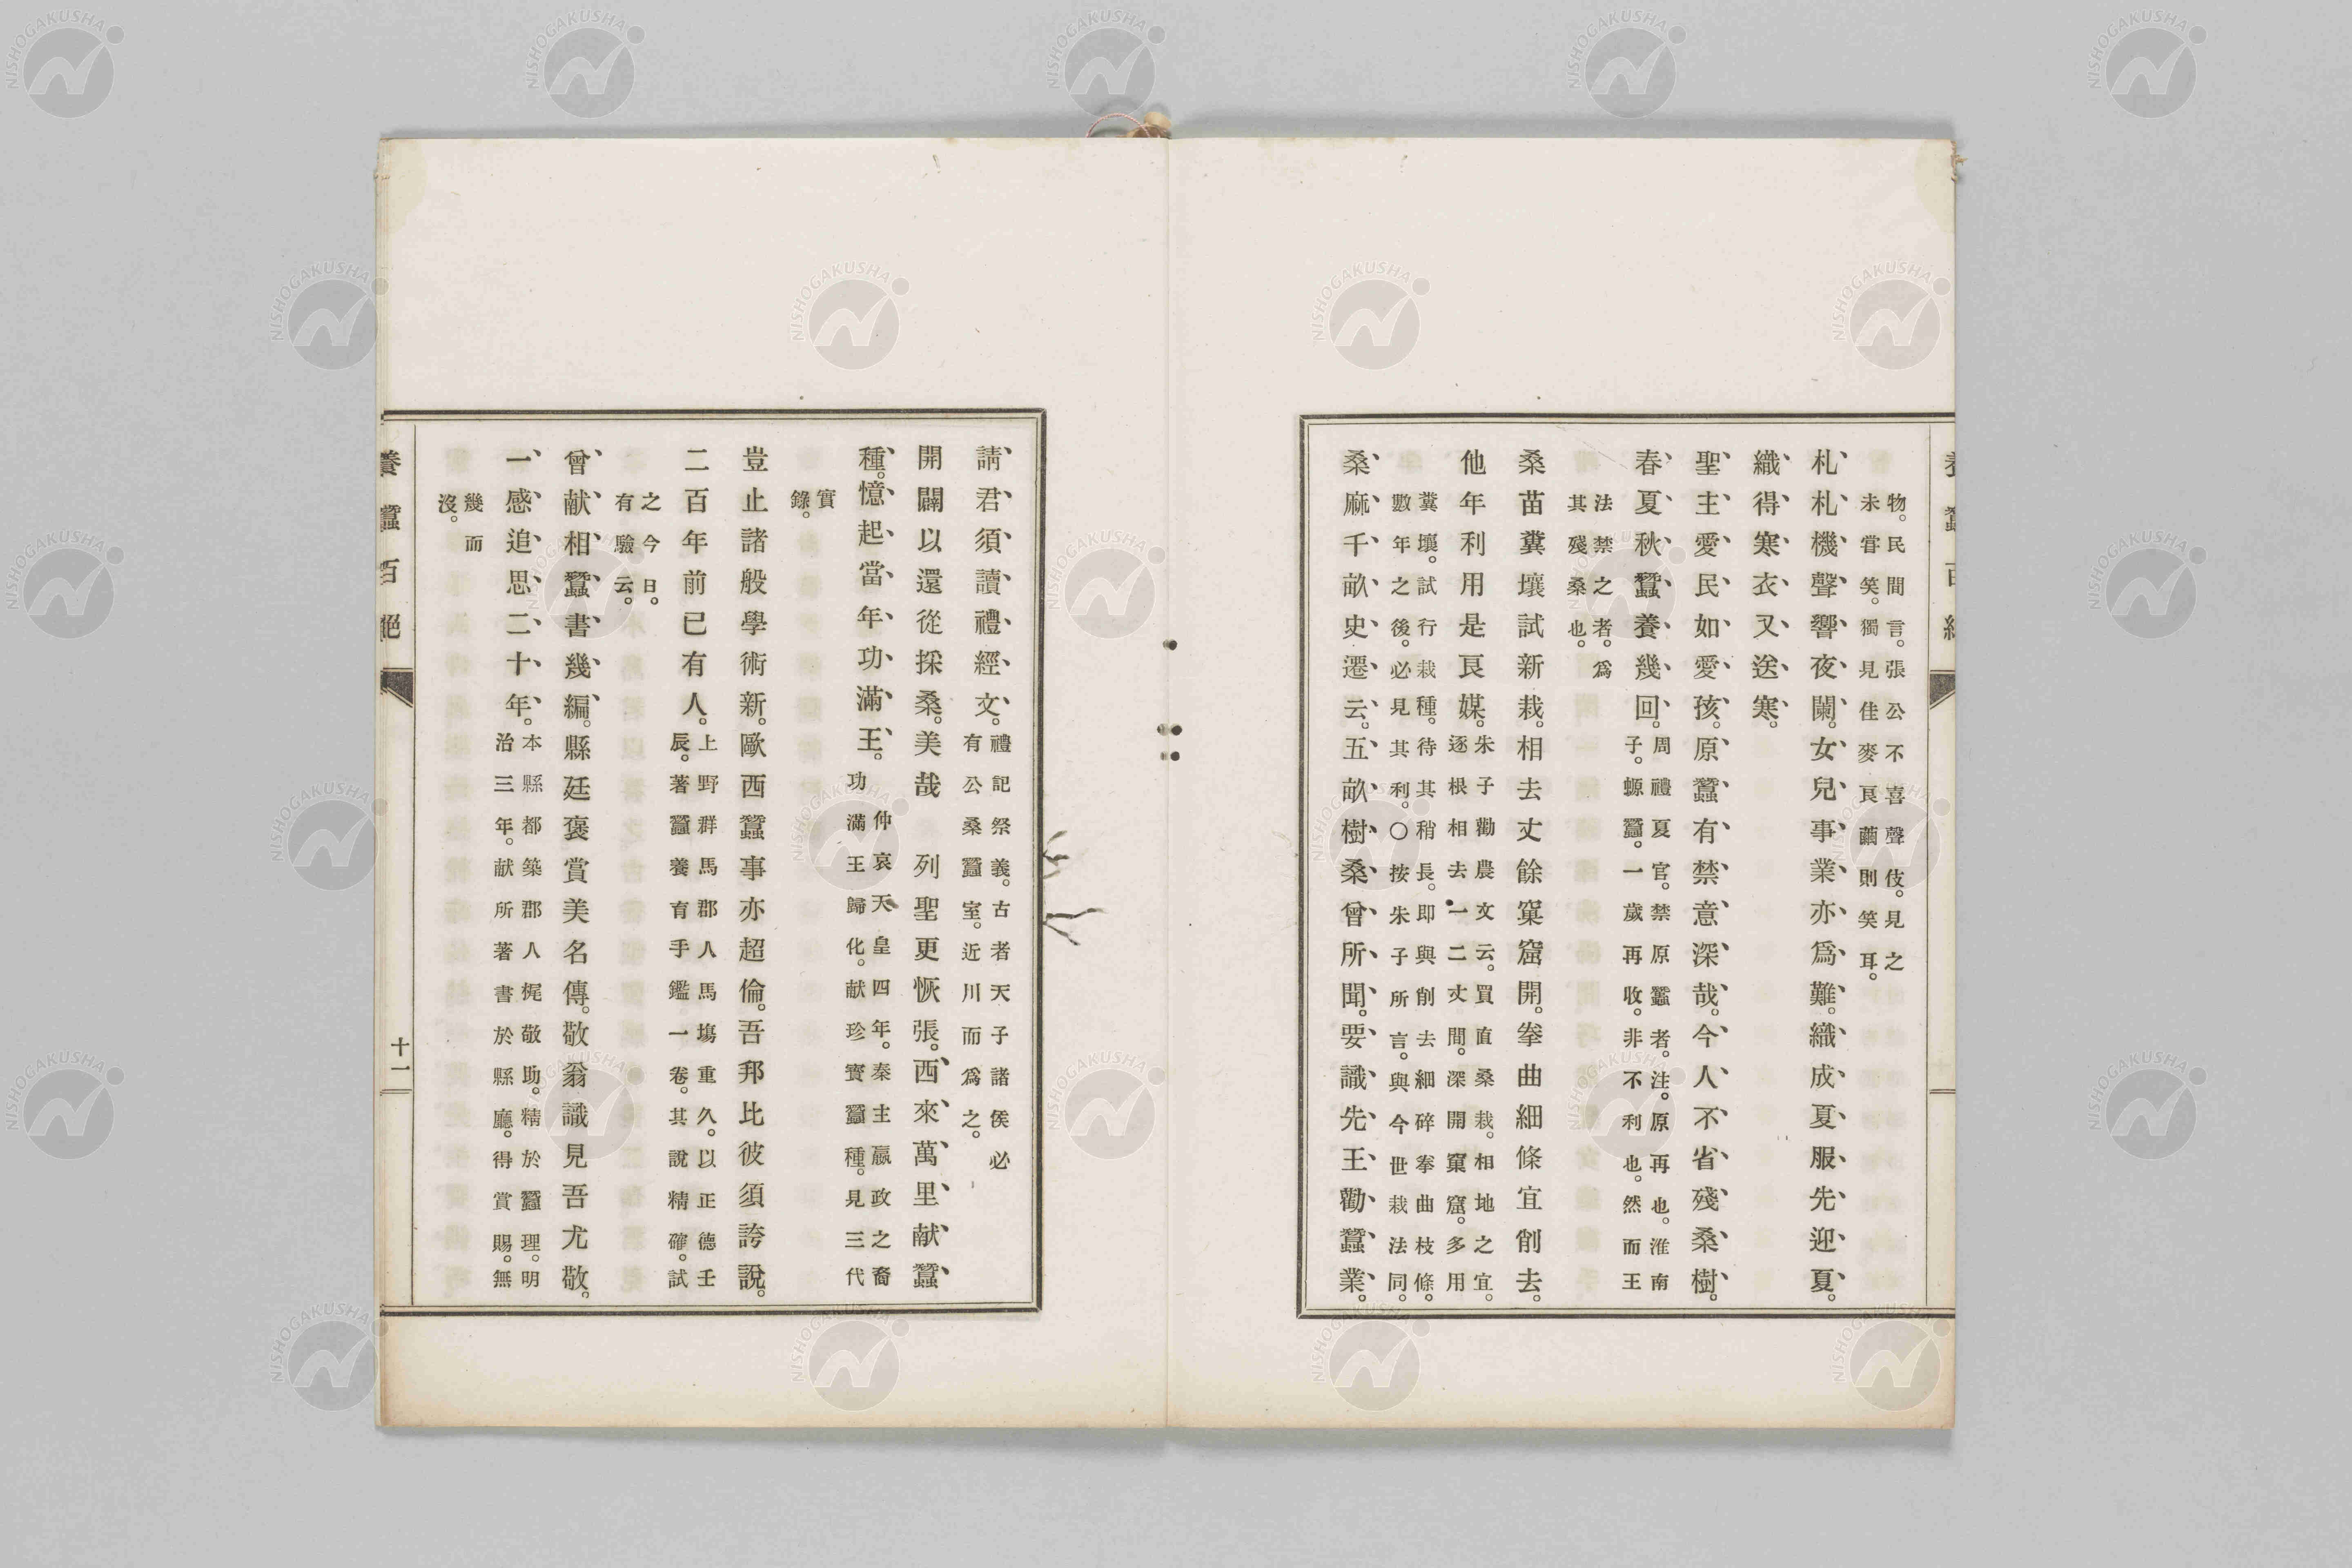 物。民間言。張公不喜聲伎。見之
未甞笑。獨見佳麥良繭則笑耳。
札札機聲響夜闌。女兒事業亦爲難。織成夏服先迎夏。
織得寒衣又送寒。
聖主愛民如愛孩。原蠶有禁意深哉。今人不省殘桑樹。
春夏秋蠶養幾回。
周禮夏官。禁原蠶者。注。原再也。淮南
子。螈蠶。一歲再收。非不利也。然而王
法禁之者。爲
其殘桑也。
桑苗糞壤試新栽。相去丈餘窠窟開。拳曲細條宜削去。
他年利用是良媒。
朱子勸農文云。買直桑栽。相地之宜。
逐根相去一二丈間。深開窠窟。多用
糞壤。試行栽種。待其稍長。即與削去細碎拳曲枝條。
數年之後。必見其利。○按朱子所言。與今世栽法同。
桑麻千畝史遷云。五畝樹桑曾所聞。要識先王勸蠶業。
請君須讀禮經文。
禮記祭義。古者天子諸侯必
有公桑蠶室。近川而爲之。
開闢以還從採桑。美哉 列聖更恢張。西來萬里献蠶
種。憶起當年功滿王。
仲哀天皇四年。秦主嬴政之裔
功滿王歸化。献珍寳蠶種。見三代
實
錄。
豈止諸般學術新。歐西蠶事亦超倫。吾邦比彼須誇說。
二百年前已有人。
上野群馬郡人馬塲重久。以正德壬
辰。著蠶養育手鑑一卷。其說精確。試
之今日。
有驗云。
曾献相蠶書幾編。縣廷褒賞美名傳。敬翁識見吾尤敬。
一感追思二十年。
本縣都築郡人梶敬助。精於蠶理。明
治三年。献所著書於縣廳。得賞賜。無
幾而
沒。
養蠶百絕
十一